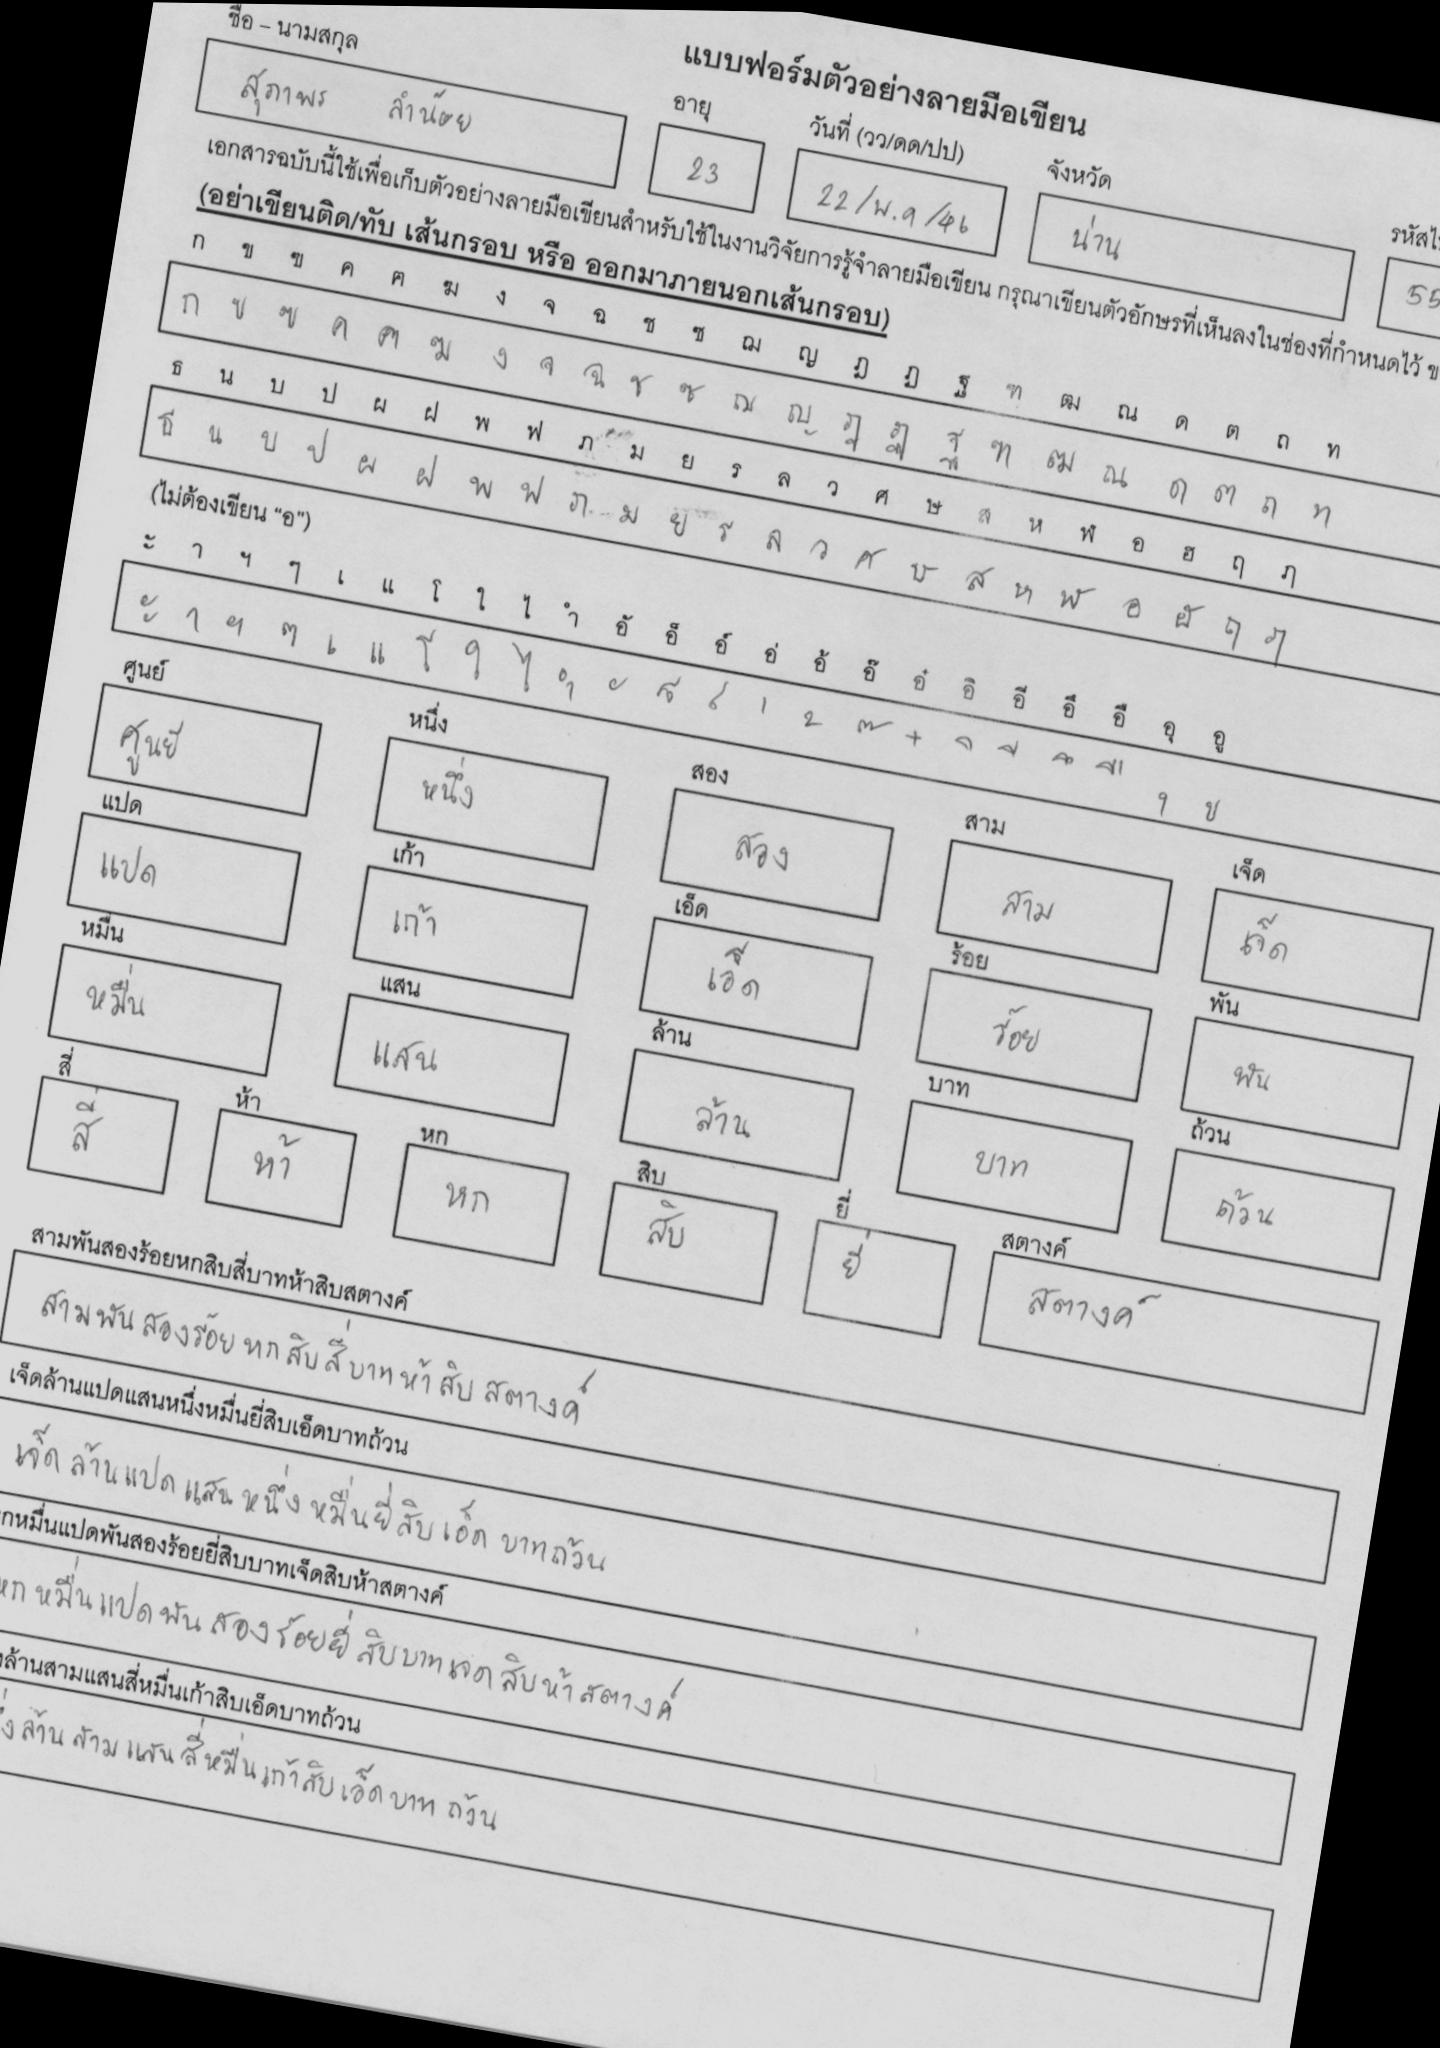 แบบฟอร์มตัวอย่างลายมือเขียน
ชื่อ – นามสกุล อายุ วันที่ (วว/ดด/ปป) จังหวัด
สุภาพร ลำน้อย 23 22/พ.ค/46 น่าน 55
เอกสารฉบับนี้ใช้เพื่อเก็บตัวอย่างลายมือเขียนสำหรับใช้ในงานวิจัยการรู้จำลายมือเขียน กรุณาเขียนตัวอักษรที่เห็นลงในช่องที่กำหนดไว้
(อย่าเขียนติด/ทับ เส้นกรอบ หรือ ออกมาภายนอกเส้นกรอบ)
ก ข ฃ ค ฅ ฆ ง จ ฉ ช ซ ฌ ญ ฎ ฏ ฐ ฑ ฒ ณ ด ต ถ ท
ก ข ฃ ค ฅ ฆ ง จ ฉ ช ซ ฌ ญ ฎ ฏ ฐ ฑ ฒ ณ ด ต ถ ท
ธ น บ ป ผ ฝ พ ฟ ภ ม ย ร ล ว ศ ษ ส ห ฬ อ ฮ ฤ ฦ
ธ น บ ป ผ ฝ พ ฟ ภ ม ย ร ล ว ศ ษ ส ห ฬ อ ฮ ฤ ฦ
(ไม่ต้องเขียน “อ”)
ะ า ฯ ๆ เ แ โ ใ ไ ำ อั อ็ อ์ อ่ อ้ อ๊ อ๋ อิ อี อึ อื อุ อู
ะ า ฯ ๆ เ แ โ ใ ไ ำ ั ็ ์ ่ ้ ๊ ๋ ิ ี ึ ื ุ ู
ศูนย์ หนึ่ง สอง สาม เจ็ด
ศูนย์ หนึ่ง สอง สาม เจ็ด
แปด เก้า เอ็ด ร้อย พัน
แปด เก้า เอ็ด ร้อย พัน
หมื่น แสน ล้าน บาท ถ้วน
หมื่น แสน ล้าน บาท ถ้วน
สี่ ห้า หก สิบ ยี่ สตางค์
สี่ ห้า หก สิบ ยี่ สตางค์
สามพันสองร้อยหกสิบสี่บาทห้าสิบสตางค์
สามพัน สองร้อย หก สิบ สี่บาท ห้า สิบ สตางค์
เจ็ดล้านแปดแสนหนึ่งหมื่นยี่สิบเอ็ดบาทถ้วน
เจ็ด ล้าน แปด แสน หนึ่ง หมื่น ยี่ สิบ เอ็ด บาทถ้วน
หกหมื่นแปดพันสองร้อยยี่สิบบาทเจ็ดสิบห้าสตางค์
หก หมื่น แปด พัน สอง ร้อยยี่ สิบ บาท เจด สิบ ห้า สตางค์
ล้านสามแสนสี่หมื่นเก้าสิบเอ็ดบาทถ้วน
ล้าน สาม แสน สี่ หมื่น เก้า สิบ เอ็ด บาท ถ้วน